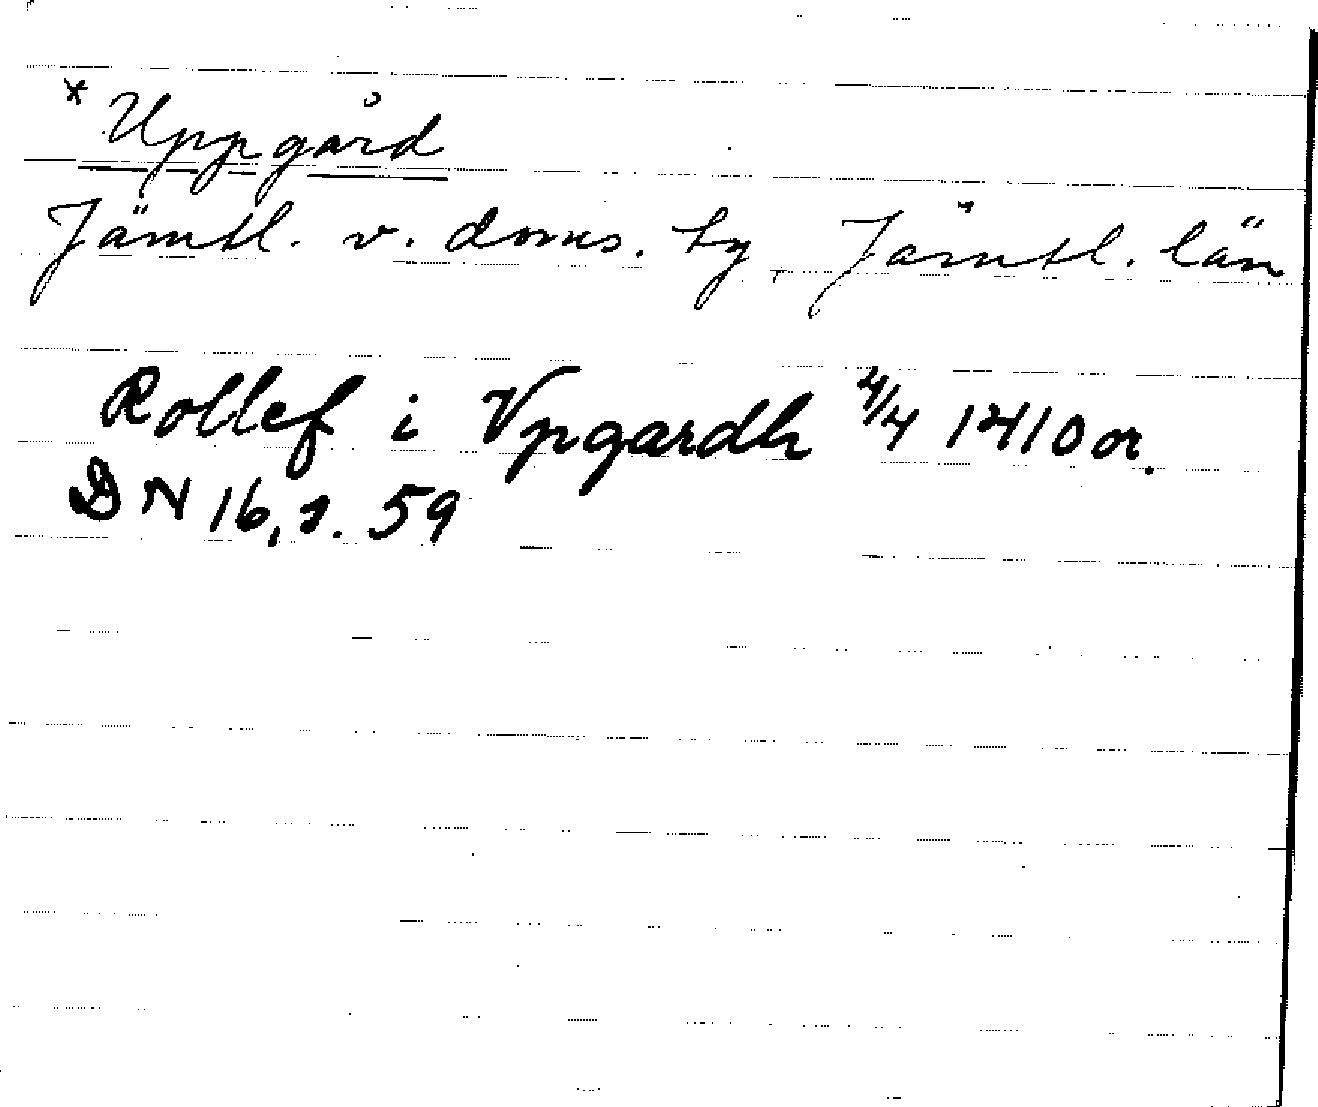 * Uppgård
Jämtl. v. doms. by, Jämtl. län
Rollef i Vpgardh 4/4 1410 or.
DN 16, s. 59